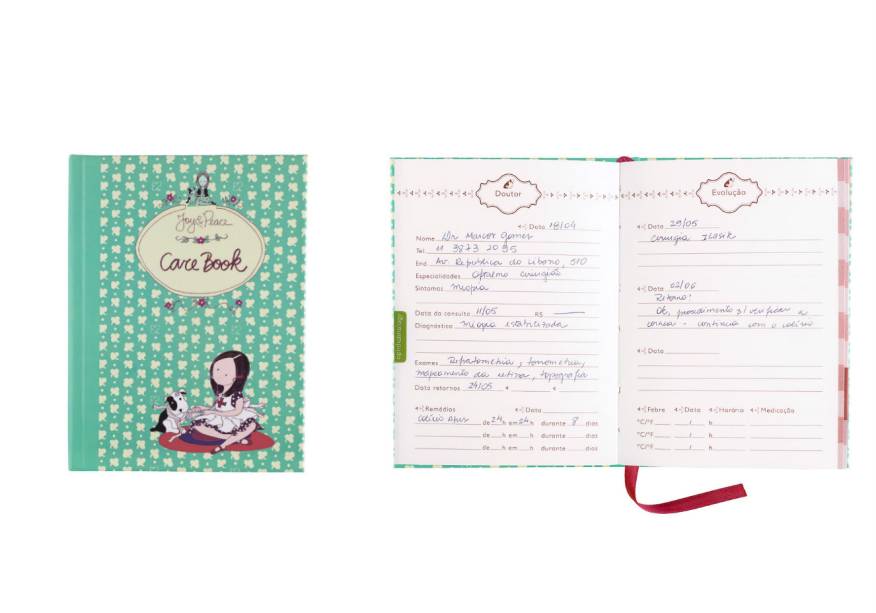 Joy & Peace
Care Book
Doutor
Data 18/04
Nome Dr. Marcos Gomes
Tel 11 3873 2095
End Av. República do Líbano, 510
Especialidades Oftalmo cirurgião
Sintomas miopia
Data da consulta 11/05 R$
Diagnóstico miopia estabilizada
Exames Refratometria, tonometria,
mapeamento da retina, topografia
Data retornos 24/05 e
Remédios Data
Colírio de 24 h em 24 h durante 8 dias
de h em h durante dias
de h em h durante dias
Evolução
Data 29/05
cirurgia ILASIK
Data 02/06
Retorno!
OK, procedimento p/ verificar a
córnea - continua com o colírio
Data
Febre Data Horário Medicação
°C/°F / h
°C/°F / h
°C/°F / h